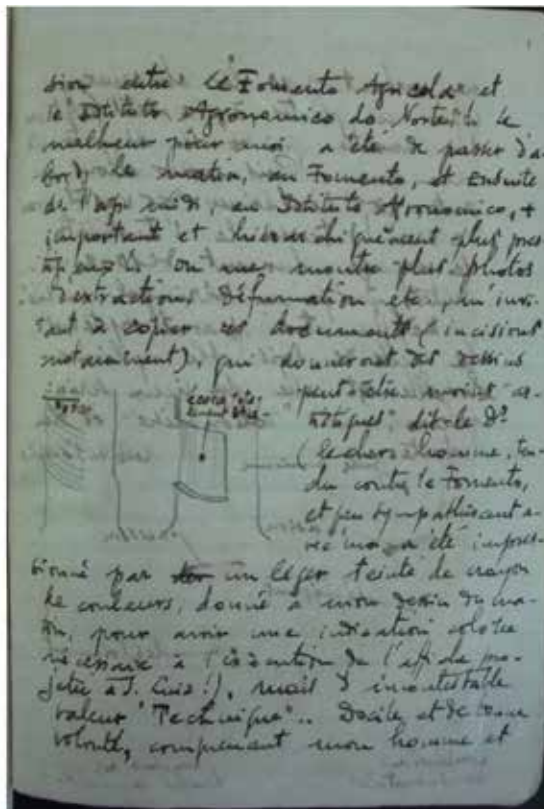 sion entre le "Fomento Agricola" et
le Istituto Agronomico do Norte. Le
malheur pour moi a été de passer d'a-
bord, le matin, au Fomento, et ensuite
de l'ap. midi, au Istituto Agronomico, +
important et hierarchiquement plus
on me montre plus photos
d'extractions déformation etc, m'invi-
tant à copier ces documents (incisions
notamment), qui donneront des dessins
peut-être moins "ar-
tistiques" dit-le Dr
(le cher homme, ten-
du contre le Fomento,
et peu sympathisant a-
vec moi a été impres-
sionné par un léger teinte de crayon
de couleurs, donné à mon dessin du ma-
tin, pour avoir une indication colorée
nécessaire à l'exécution de l'affiche pro-
jetée à S. Luiz!), mais d'incontestable
valeur "Technique".. Docile, et de bonne
volonté, comprenant mon homme et